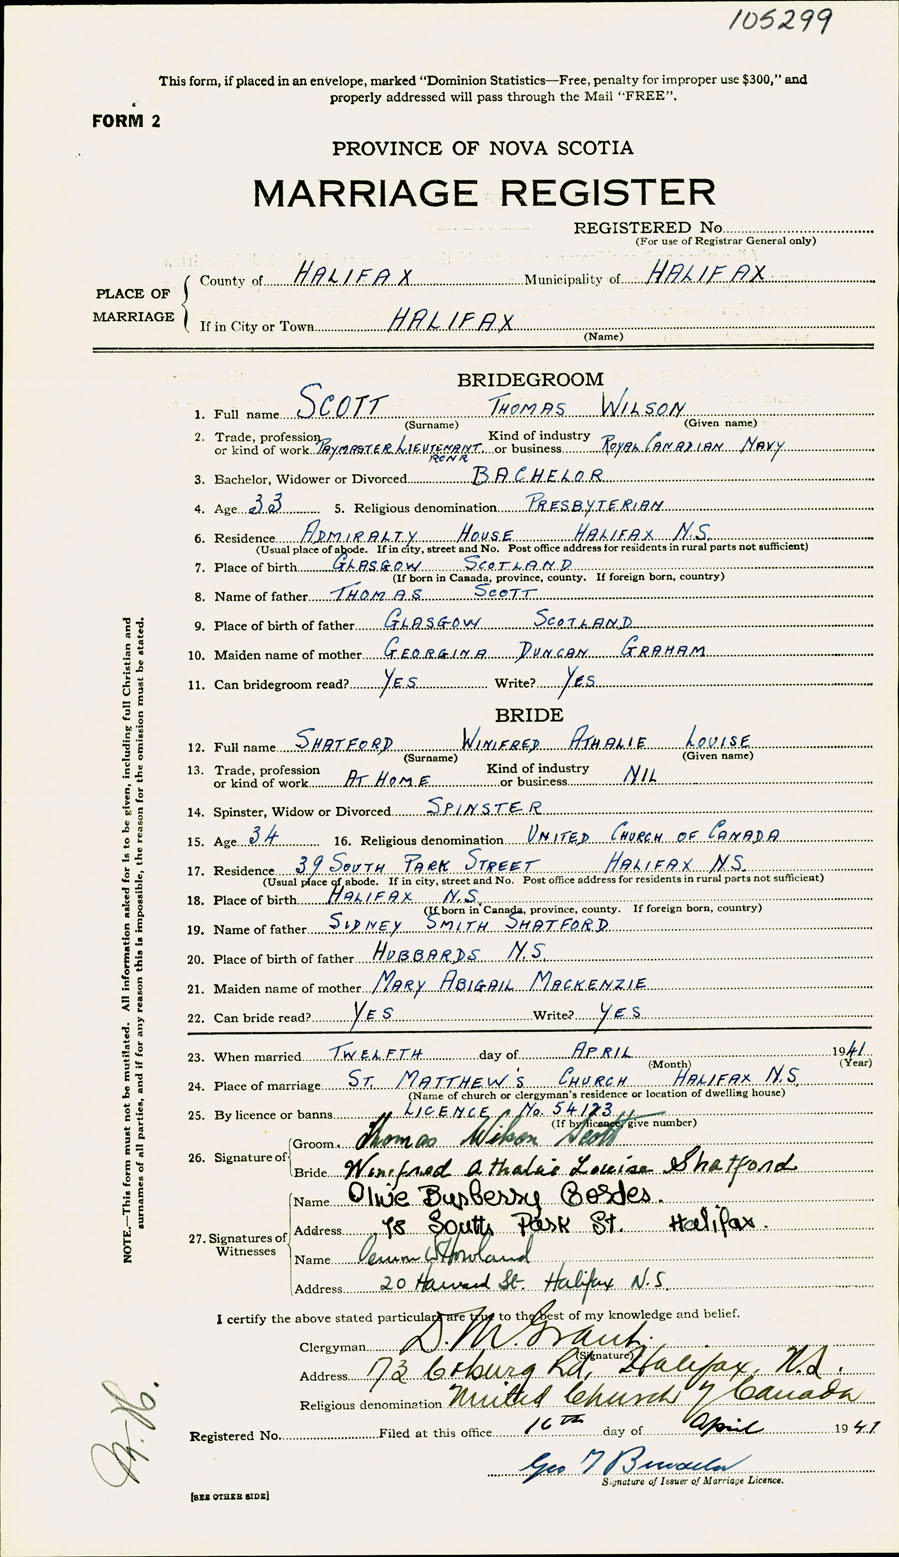 105299
This form, if placed in an envelope, marked "Dominion Statistics—Free, penalty for improper use $300," and
properly addressed will pass through the Mail "FREE".
FORM 2
PROVINCE OF NOVA SCOTIA
MARRIAGE REGISTER
REGISTERED No.
(For use of Registrar General only)
PLACE OF MARRIAGE
County of HALIFAX Municipality of HALIFAX
If in City or Town HALIFAX
(Name)
BRIDEGROOM
1. Full name SCOTT THOMAS WILSON
(Surname) (Given name)
2. Trade, profession or kind of work PAYMASTER LIEUTENANT RCNR Kind of industry or business ROYAL CANADIAN NAVY
3. Bachelor, Widower or Divorced BACHELOR
4. Age 33 5. Religious denomination PRESBYTERIAN
6. Residence ADMIRALTY HOUSE HALIFAX N.S.
(Usual place of abode. If in city, street and No. Post office address for residents in rural parts not sufficient)
7. Place of birth GLASGOW SCOTLAND
(If born in Canada, province, county. If foreign born, country)
8. Name of father THOMAS SCOTT
9. Place of birth of father GLASGOW SCOTLAND
10. Maiden name of mother GEORGINA DUNCAN GRAHAM
11. Can bridegroom read? YES Write? YES
BRIDE
12. Full name SHATFORD WINIFRED ATHALIE LOUISE
(Surname) (Given name)
13. Trade, profession or kind of work AT HOME Kind of industry or business NIL
14. Spinster, Widow or Divorced SPINSTER
15. Age 34 16. Religious denomination UNITED CHURCH OF CANADA
17. Residence 39 SOUTH PARK STREET HALIFAX N.S.
(Usual place of abode. If in city, street and No. Post office address for residents in rural parts not sufficient)
18. Place of birth HALIFAX N.S.
(If born in Canada, province, county. If foreign born, country)
19. Name of father SIDNEY SMITH SHATFORD
20. Place of birth of father HUBBARDS N.S.
21. Maiden name of mother MARY ABIGAIL MACKENZIE
22. Can bride read? YES Write? YES
23. When married TWELFTH day of APRIL 1941
(Month) (Year)
24. Place of marriage ST. MATTHEW'S CHURCH HALIFAX N.S.
(Name of church or clergyman's residence or location of dwelling house)
25. By licence or banns LICENCE No. 54123
(If by licence, give number)
26. Signature of
Groom Thomas Wilson Scott
Bride Winifred Athalie Louise Shatford
27. Signatures of Witnesses
Name Olive Burberry Bordes.
Address 78 South Park St. Halifax.
Name Howland
Address 20 Harvard St. Halifax N.S.
I certify the above stated particulars are true to the best of my knowledge and belief.
Clergyman D. M. Grant.
(Signature)
Address 73 Coburg Rd, Halifax, N.S.
Religious denomination United Church of Canada
Registered No. Filed at this office 16th day of April 1941
Geo
Signature of Issuer of Marriage Licence.
[SEE OTHER SIDE]
NOTE.—This form must not be mutilated. All information asked for is to be given, including full Christian and
surnames of all parties, and if for any reason this is impossible, the reason for the omission must be stated.